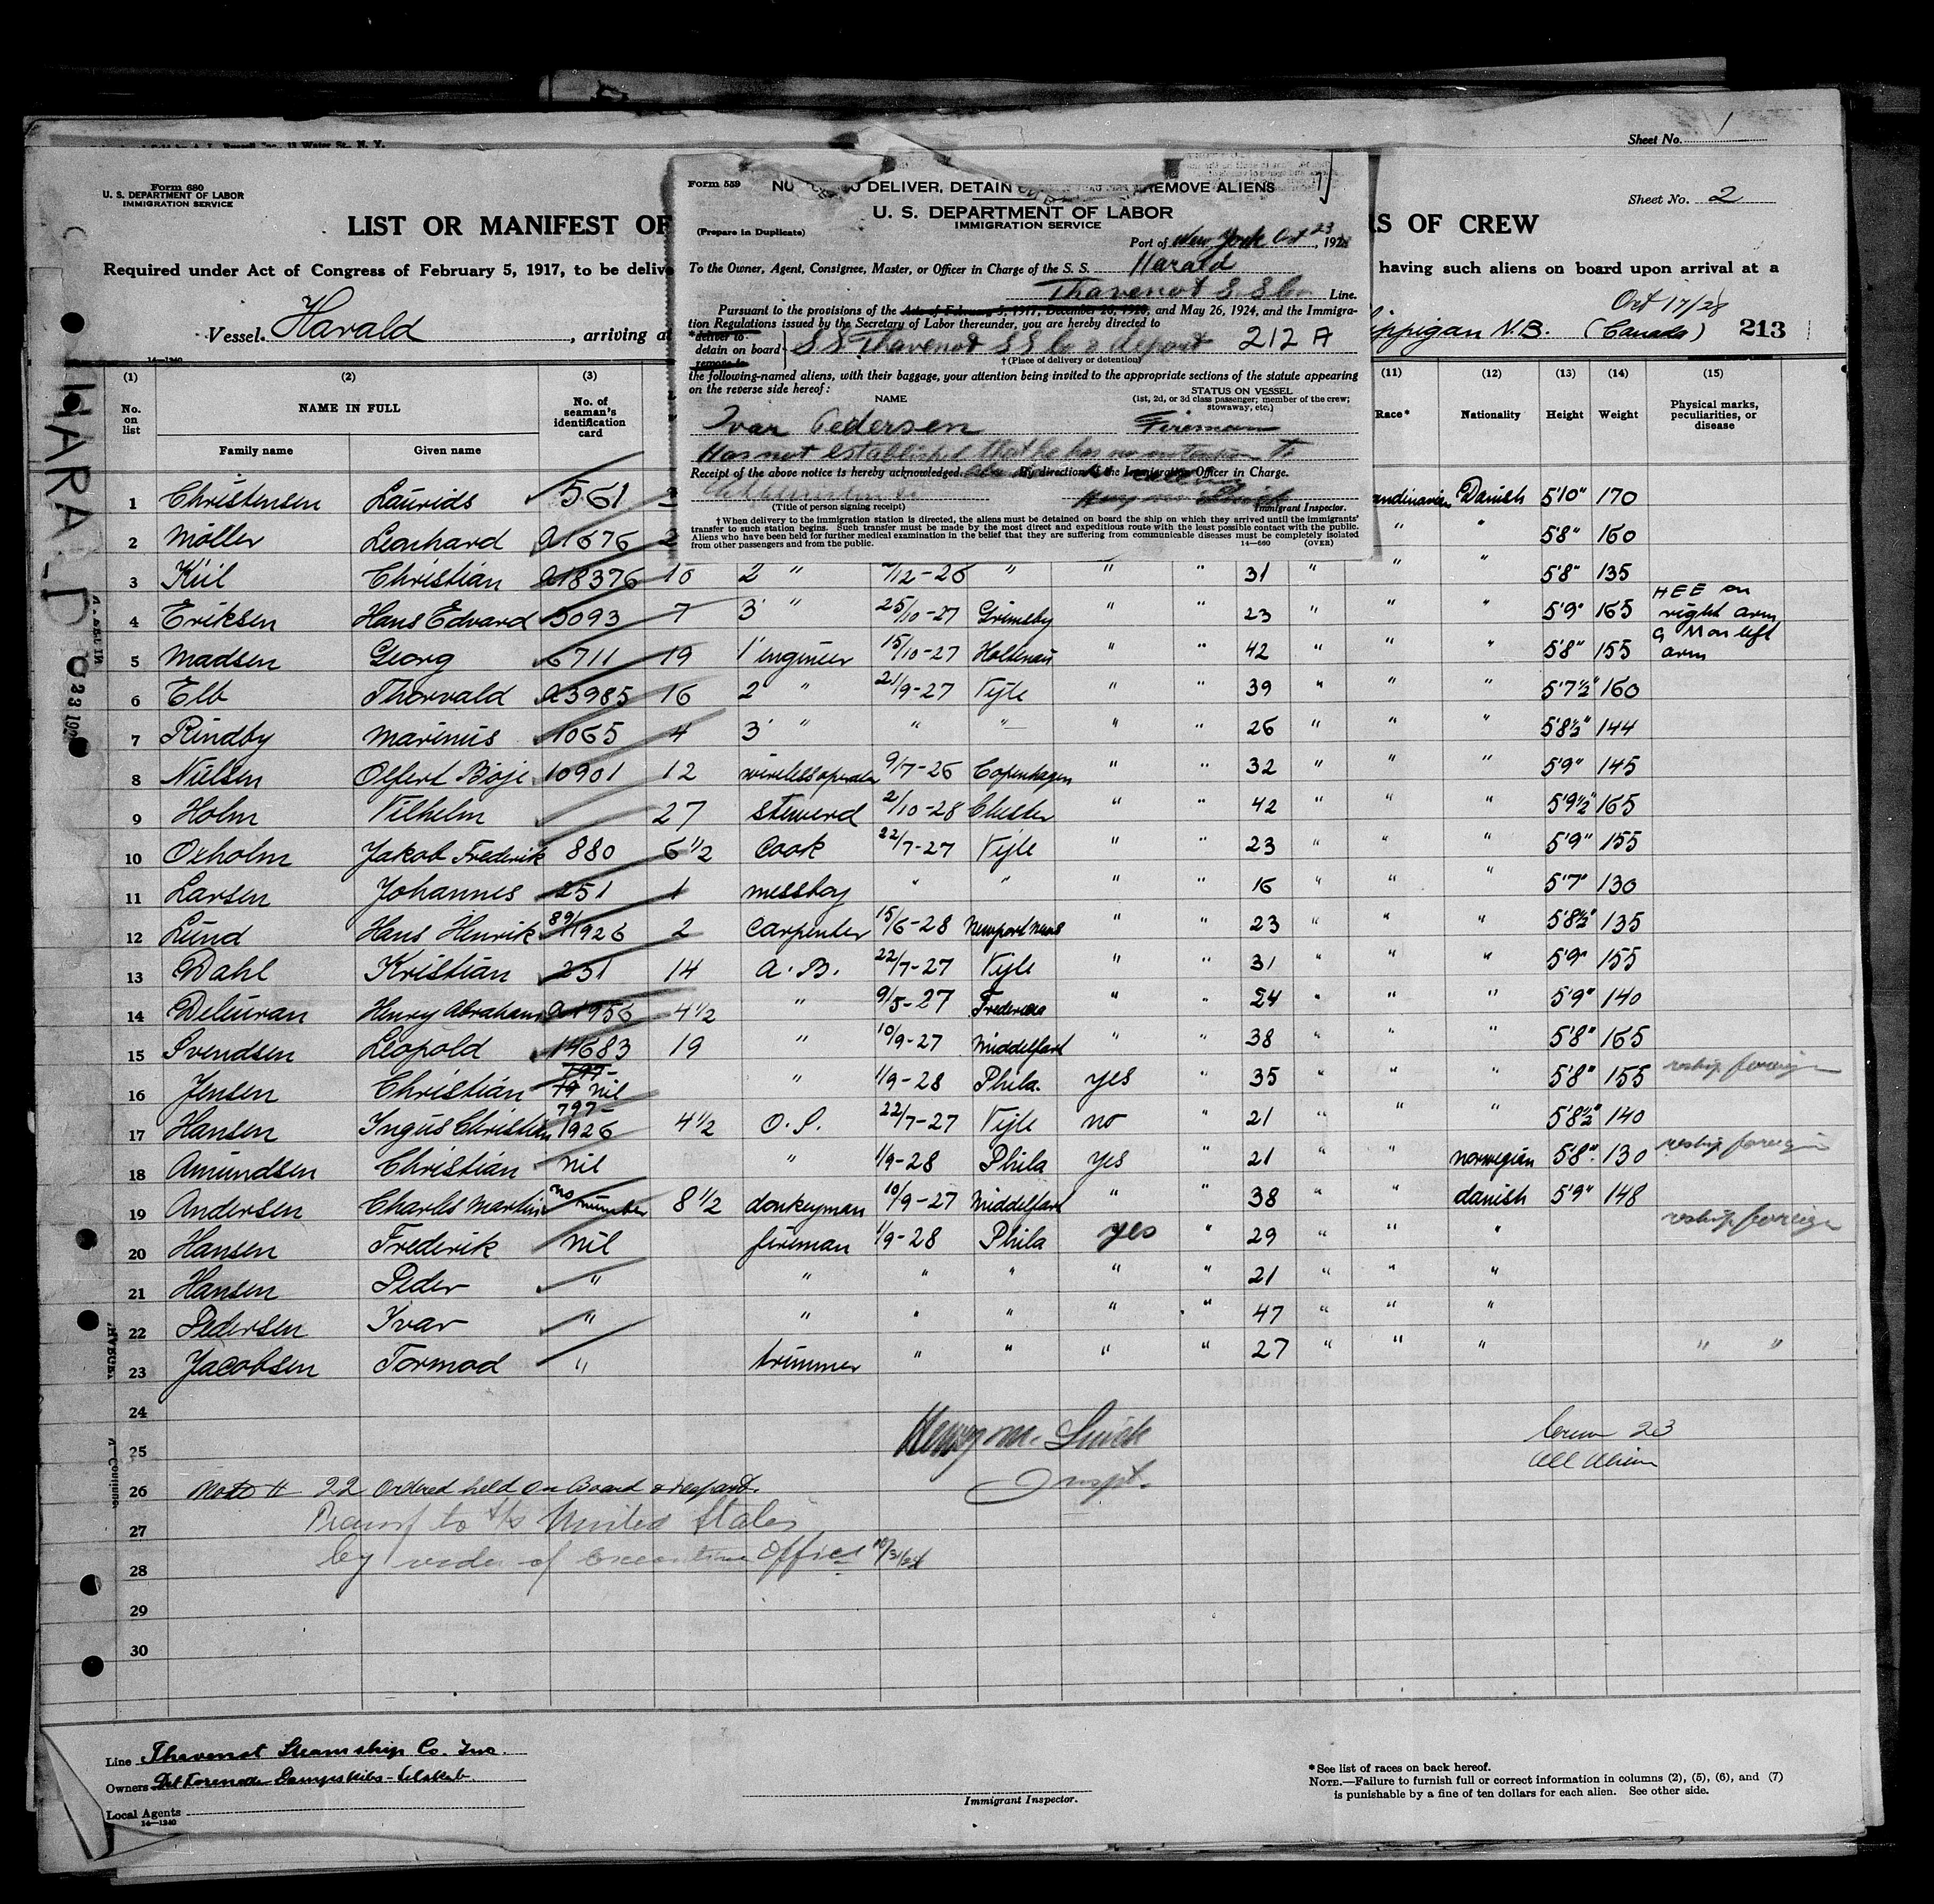 Sheet No. 1
Form 680
U. S. DEPARTMENT OF LABOR
IMMIGRATION SERVICE
Sheet No. 2
LIST OR MANIFEST OF
S OF CREW
Required under Act of Congress of February 5, 1917, to be delive
having such aliens on board upon arrival at a
Vessel Harald, arriving at
ippigan N.B. (Canada) Oct 17/28 213
14—1240
Form 559
O DELIVER, DETAIN
REMOVE ALIENS
U. S. DEPARTMENT OF LABOR
IMMIGRATION SERVICE
(Prepare in Duplicate)
Port of New York Oct 23, 1928
To the Owner, Agent, Consignee, Master, or Officer in Charge of the S. S. Harald
Thavenot S. S Co Line.
Pursuant to the provisions of the Acts of February 5, 1917, December 26, 1920, and May 26, 1924, and the Immigra-
tion Regulations issued by the Secretary of Labor thereunder, you are hereby directed to
*deliver to
detain on board
remove to
SS Thavenot SS Co & deport 212 A
†(Place of delivery or detention)
the following-named aliens, with their baggage, your attention being invited to the appropriate sections of the statute appearing
on the reverse side hereof:
NAME
STATUS ON VESSEL
(1st, 2d, or 3d class passenger; member of the crew;
stowaway, etc.)
Ivar Pedersen Fireman
Has not established that he has no intention to
Receipt of the above notice is hereby acknowledged. By direction of the Immigration Officer in Charge.
(Title of person signing receipt)
Immigrant Inspector.
†When delivery to the immigration station is directed, the aliens must be detained on board the ship on which they arrived until the immigrants'
transfer to such station begins. Such transfer must be made by the most direct and expeditious route with the least possible contact with the public.
Aliens who have been held for further medical examination in the belief that they are suffering from communicable diseases must be completely isolated
from other passengers and from the public.
14—660 (OVER)
(1) (2) (3) (11) (12) (13) (14) (15)
No. on list
NAME IN FULL
Family name Given name
No. of seaman's identification card
Race* Nationality Height Weight
Physical marks, peculiarities, or disease
1 Christensen Laurids 561 andinavian Danish 5'10" 170
2 Möller Leonhard a1676 2 " " 5'8" 160
3 Kiil Christian a18376 16 2 " /12-26 " " " 31 " " " 5'8" 135
4 Eriksen Hans Edvard 5093 7 3' " 25/10-27 Grimsby " " 23 " " " 5'9" 165 HEE on right arm
5 Madsen Georg 6711 19 1' engineer 15/10-27 Holtenau " " 42 " " " 5'8" 155 G M on left arm
6 Elb Thorvald a3985 16 2 " 21/9-27 Vejle " " 39 " " " 5'7½" 160
7 Rindby Marinus 1065 4 3' " " " " " 26 " " " 5'8½" 144
8 Nielsen Olfert Böje 10901 12 wirelessoperator 9/7-26 Copenhagen " " 32 " " " 5'9" 145
9 Holm Vilhelm 27 steward 2/10-28 Chester " " 42 " " " 5'9½" 165
10 Oxholm Jakob Frederik 880 6½ Cook 22/7-27 Vejle " " 23 " " " 5'9" 155
11 Larsen Johannes 251 1 messboy " " " " 16 " " " 5'7" 130
12 Lund Hans Henrik 89/1926 2 Carpenter 15/6-28 Newport News " " 23 " " " 5'8½" 135
13 Dahl Kristian 231 14 A. B. 22/7-27 Vejle " " 31 " " " 5'9" 155
14 Deleuran Henry Abraham a1956 4½ " 9/5-27 Fredericia " " 24 " " " 5'9" 140
15 Svendsen Leopold 14683 19 " 10/9-27 Middelfart " " 38 " " " 5'8" 165
16 Jensen Christian nil " 1/9-28 Phila. yes " 35 " " " 5'8" 155 reship foreign
17 Hansen Ingus Christian 797-1926 4½ O. S. 22/7-27 Vejle no " 21 " " " 5'8½" 140
18 Amundsen Christian nil " 1/9-28 Phila yes " 21 " " norwegian 5'8" 130 reship foreign
19 Andersen Charles Martin no number 8½ donkeyman 10/9-27 Middelfart " " 38 " " danish 5'9" 148
20 Hansen Frederik nil fireman 1/9-28 Phila yes " 29 " " " reship foreign
21 Hansen Peder " " " " " " 21 " " "
22 Pedersen Ivar " " " " " " 47 " " "
23 Jacobsen Tormod " trimmer " " " " 27 " " " " "
24
25
26
27
28
29
30
Henry M.
Inspt.
Crew 23
All Aliens
Note # 22 Ordered held on Board & deport.
Transf to s/s United States
by order of Executive Office 10/31/28
HARALD
Line Thavenot Steamship Co. Inc.
Owners Det Forenede Dampskibs-Selskab
Local Agents
14—1240
Immigrant Inspector.
*See list of races on back hereof.
NOTE.—Failure to furnish full or correct information in columns (2), (5), (6), and (7)
is punishable by a fine of ten dollars for each alien. See other side.